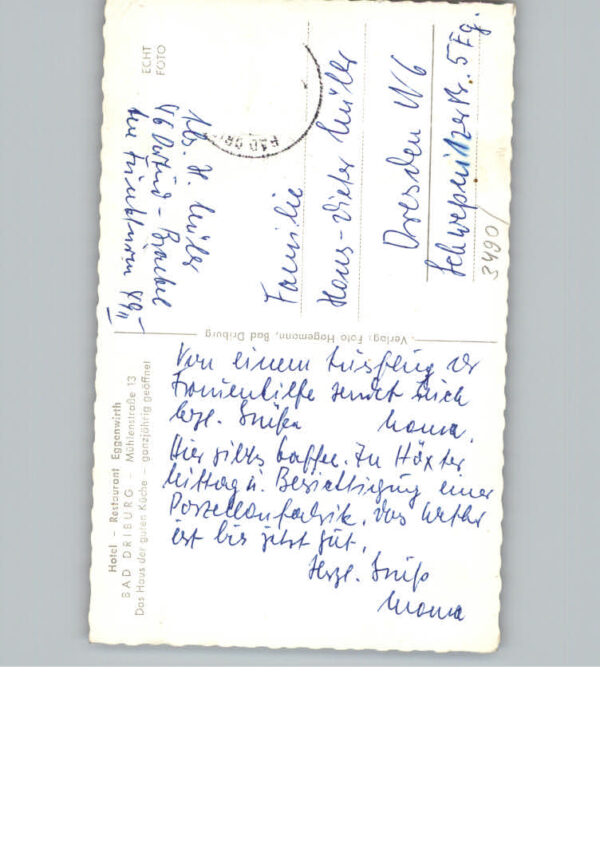 Hotel – Restaurant Eggenwirth
BAD DRIBURG – Mühlenstraße 13
Das Haus der guten Küche – ganzjährig geöffnet
Von einem Ausflug der
Frauenhilfe sendet Euch
herzl. Grüße Mama.
Hier gibt's Kaffee. In Höxter
Mittag u. Besichtigung einer
Porzellanfabrik. Das Wetter
ist bis jetzt gut.
Herzl. Gruß
Mama
Verlag: Foto Hagemann, Bad Driburg
ECHT
FOTO
Abs. H. Müller
46 Dortmd - Brackel
BAD DRI
Familie
Hans-Dieter Müller
Dresden N6
Schwepnitzerstr. 5 Eg.
3490/